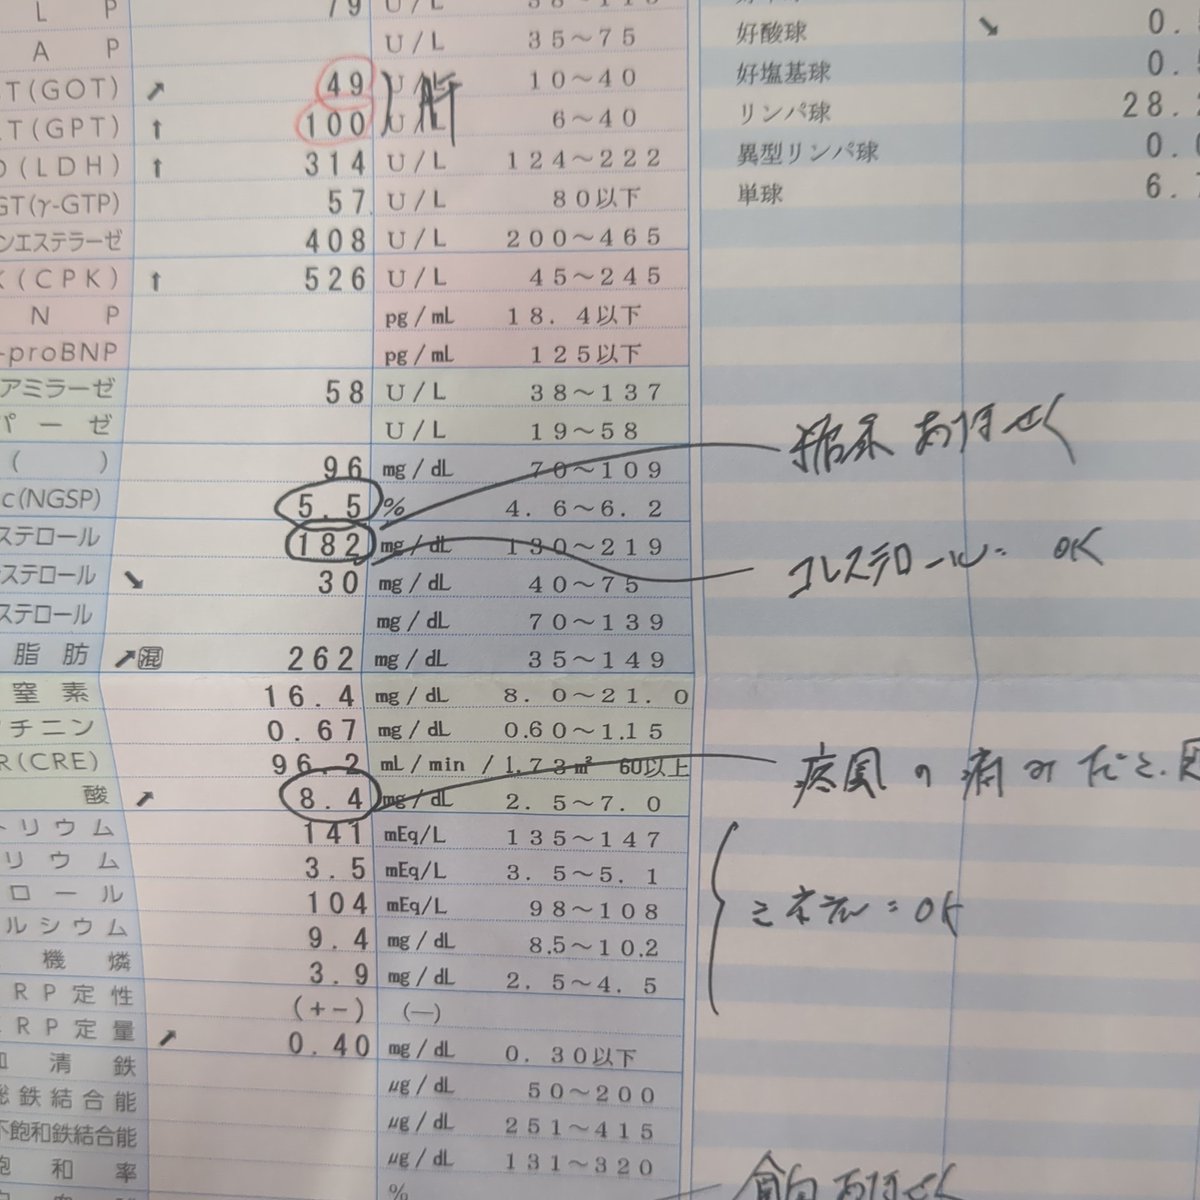 L P 79 U/L
A P U/L 35～75
ST(GOT) ↗ 49 U/L 10～40
LT(GPT) ↑ 100 U/L 6～40 肝
D(LDH) ↑ 314 U/L 124～222
GT(γ-GTP) 57 U/L 80以下
ンエステラーゼ 408 U/L 200～465
K(CPK) ↑ 526 U/L 45～245
N P pg/mL 18.4以下
-proBNP pg/mL 125以下
アミラーゼ 58 U/L 38～137
パーゼ U/L 19～58
( ) 96 mg/dL 70～109
c(NGSP) 5.5 % 4.6～6.2
ステロール 182 mg/dL 130～219
ステロール ↘ 30 mg/dL 40～75
ステロール mg/dL 70～139
脂肪 ↗混 262 mg/dL 35～149
窒素 16.4 mg/dL 8.0～21.0
チニン 0.67 mg/dL 0.60～1.15
R(CRE) 96.2 mL/min/1.73㎡ 60以上
酸 ↗ 8.4 mg/dL 2.5～7.0
トリウム 141 mEq/L 135～147
リウム 3.5 mEq/L 3.5～5.1
ロール 104 mEq/L 98～108
ルシウム 9.4 mg/dL 8.5～10.2
機燐 3.9 mg/dL 2.5～4.5
RP定性 (+-) (—)
RP定量 ↗ 0.40 mg/dL 0.30以下
清鉄 μg/dL 50～200
総鉄結合能 μg/dL 251～415
不飽和鉄結合能 μg/dL 131～320
飽和率 %
好酸球 ↘ 0.
好塩基球 0.
リンパ球 28.
異型リンパ球 0.
単球 6.
糖尿
コレステロール OK
痛風の痛みだと
ミネラル:OK